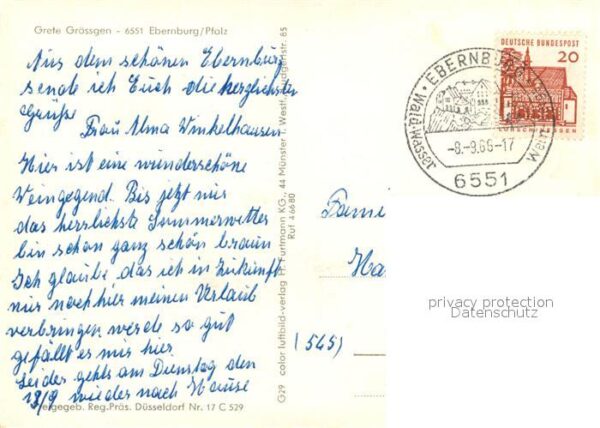 Grete Grössgen - 6551 Ebernburg/Pfalz
Aus dem schönen Ebernburg
sende ich Euch die herzlichsten
Grüsse
Frau Alma Winkelhausen
Hier ist eine wunderschöne
Weingegend. Bis jetzt nur
das herrlichste Sommerwetter
bin schon ganz schön braun
Ich glaube das ich in Zukunft
nur noch hier meinen Urlaub
verbringen werde so gut
gefällt es mir hier
Leider gehts am Dienstag den
13/9 wieder nach Hause
Freigegeb. Reg.Präs. Düsseldorf Nr. 17 C 529
G29 color luftbild-verlag H. Furtmann KG., 44 Münster i. Westf.,
85
Ruf 46680
DEUTSCHE BUNDESPOST
20
LORSCH/HESSEN
EBERNBURG
Wald-Wasser
Wein
-8.-9.66-17
6551
Fami
Ha
(565)
privacy protection
Datenschutz